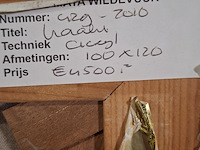 MAYA WILDEVUUR
Nummer: 429 - 2010
Titel:
Techniek Acryl
Afmetingen: 100 x 120
Prijs €4500,=